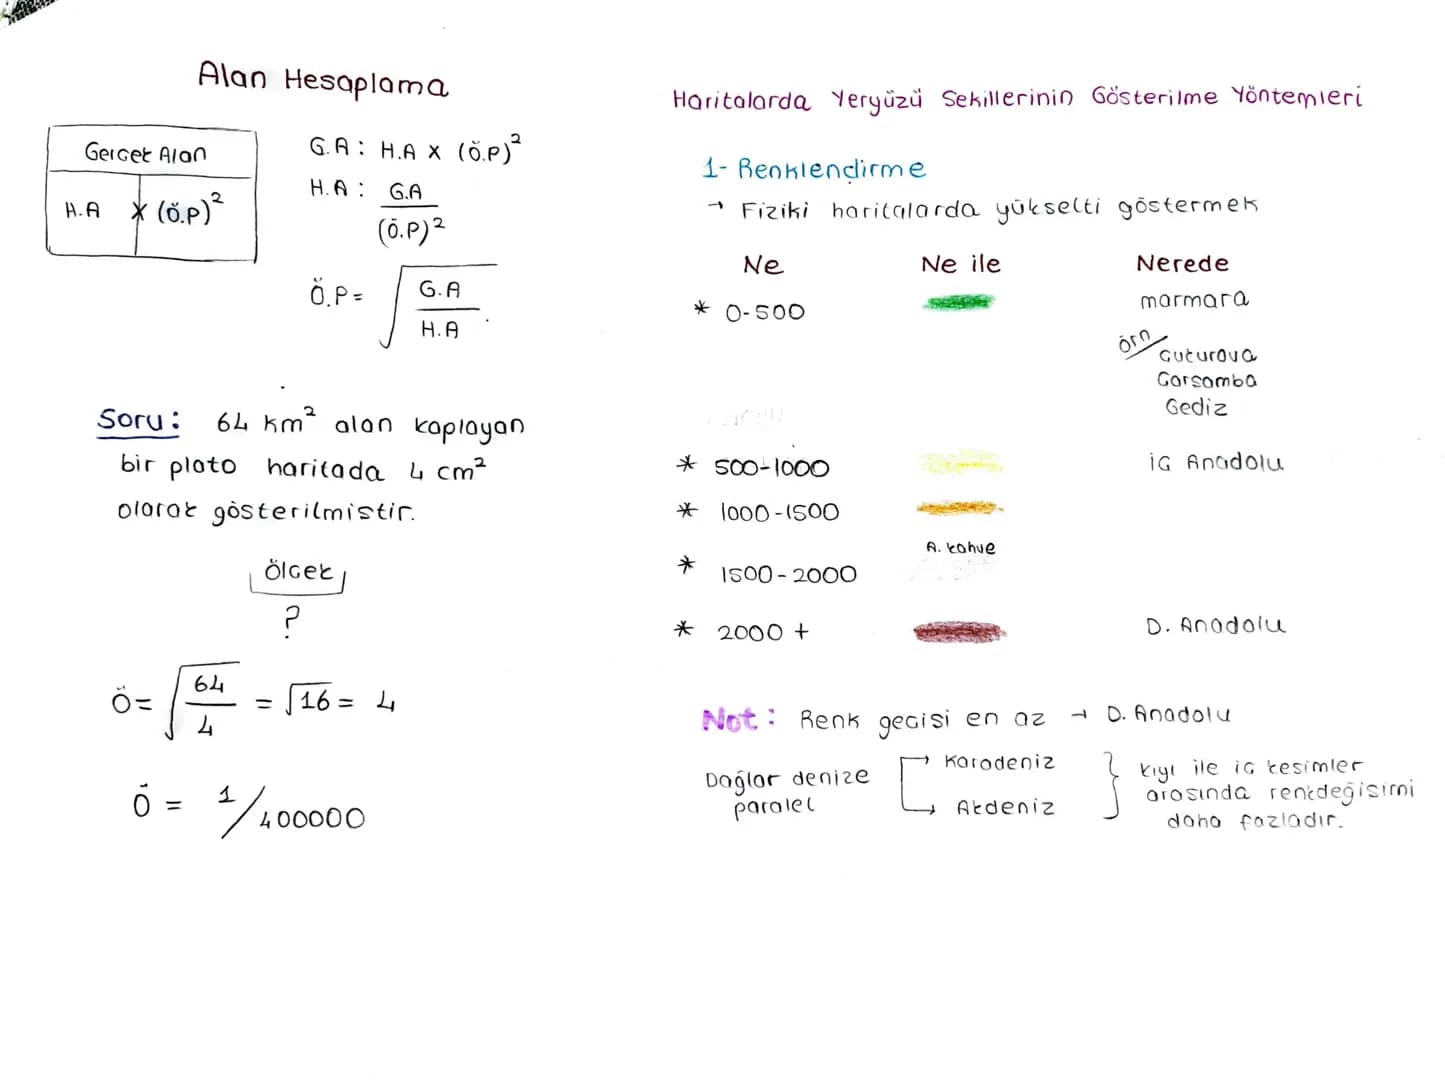 Alan Hesaplama
Gerçek Alan
H.A x (Ö.P)²
G.A : H.A x (Ö.P)²
H.A : G.A
(Ö.P)²
Ö.P = √ G.A
H.A
Soru: 64 km² alan kaplayan
bir plato haritada 4 cm²
olarak gösterilmistir.
Ölçek
?
Ö = √ 64 / 4 = √16 = 4
Ö = 1/400000
Haritalarda Yeryüzü Sekillerinin Gösterilme Yöntemleri
1- Renklendirme
→ Fiziki haritalarda yükselti göstermek
Ne Ne ile Nerede
* 0-500 marmara
Örn Çukurova
Çarsamba
Gediz
* 500-1000 iç Anadolu
* 1000-1500
A. kahve
* 1500-2000
* 2000 + D. Anadolu
Not: Renk geçisi en az → D. Anadolu
Dağlar denize
paralel
→ Karadeniz
→ Akdeniz
} kıyı ile iç kesimler
arasında renkdeğisimi
daha fazladır.